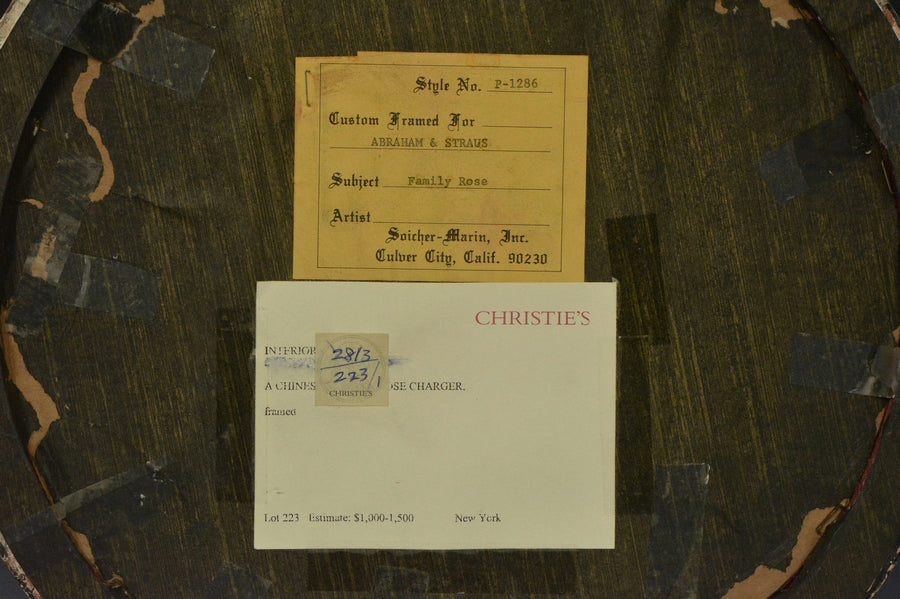 Style No. P-1286
Custom Framed For
ABRAHAM & STRAUS
Subject Family Rose
Artist
Soicher-Marin, Inc.
Culver City, Calif. 90230
CHRISTIE'S
INTERIOR
2813
223/1
CHRISTIE'S
A CHINES OSE CHARGER.
framed
Lot 223 Estimate: $1,000-1,500 New York